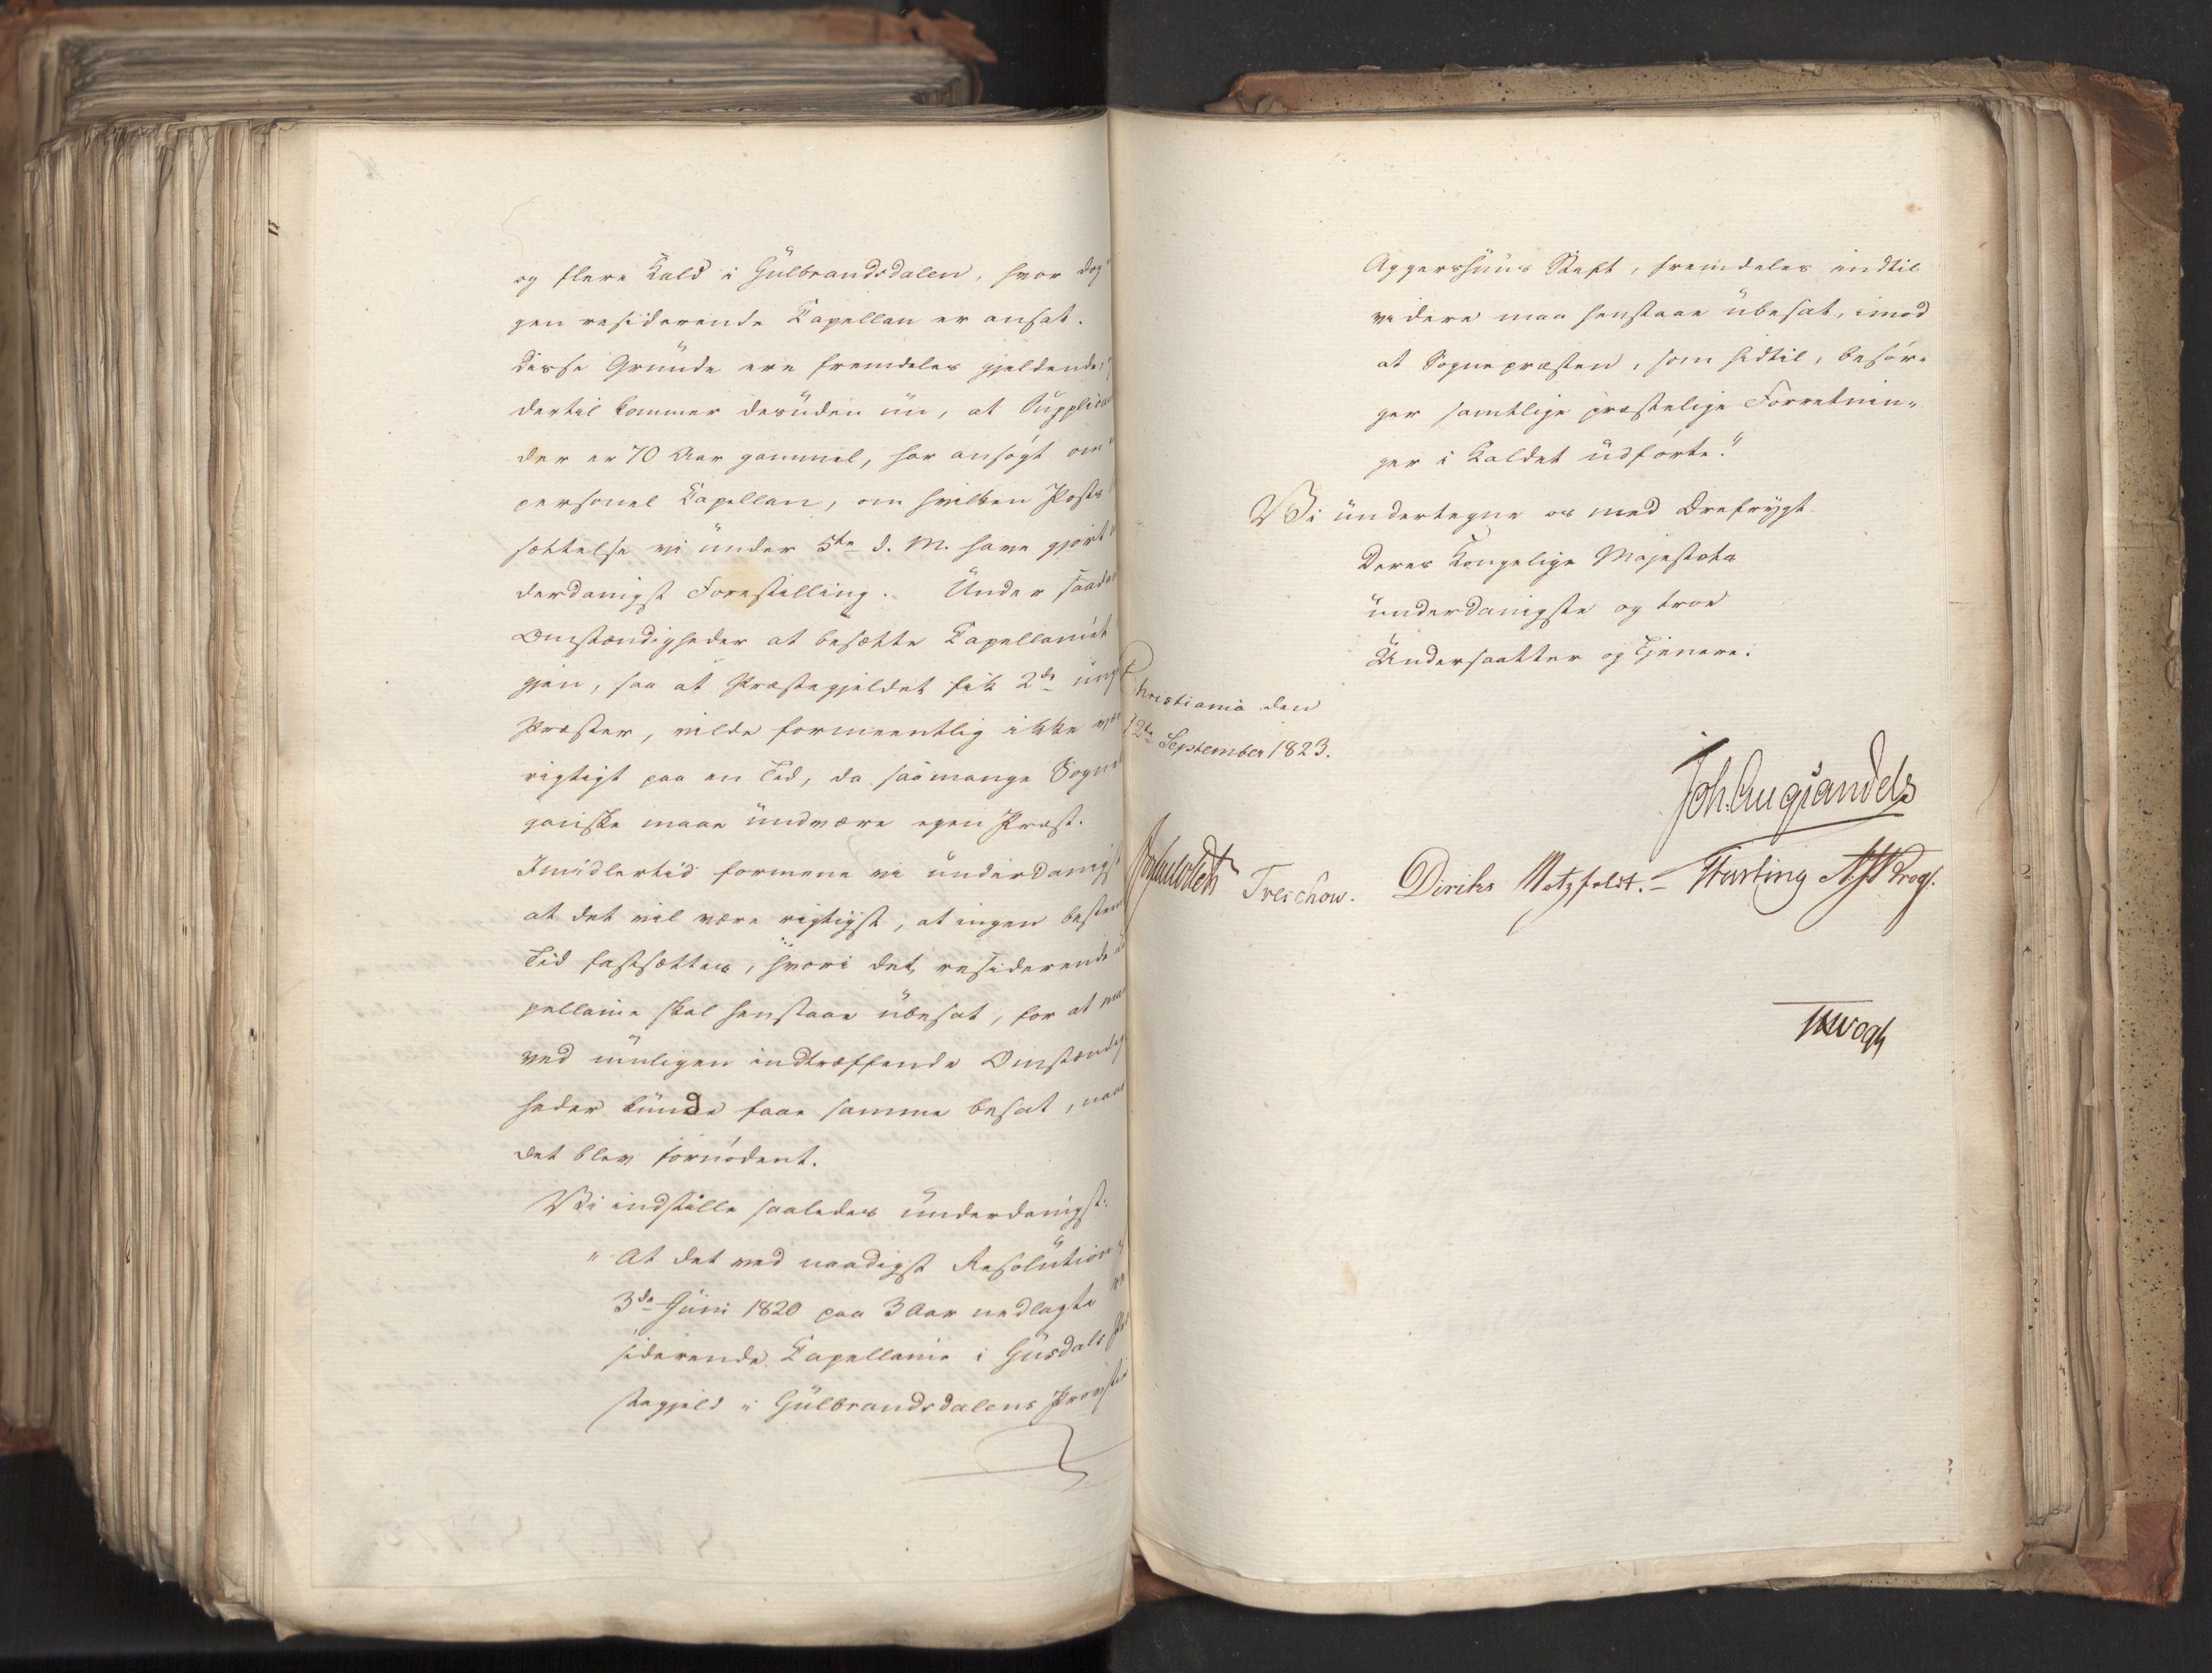 og flere Kald i Gulbrandsdalen, hvor dog
gen residerende Capellan er ansat.
Disse Grunde ere fremdeles gjeldende,
dertil kommer desuden nu, at Supplica
der er 70 Aar gammel, har ansøgt om
personel Capellan, om hvilken Posts
sættelse vi under 5te d. M. have gjort
derdanigst Forestilling. Under saada
Omstændigheder at besætte Capellaniet
gjen, saa at Præstegjeldet fik 2de ung
Præster, vilde formeentlig ikke vær
rigtigt paa en Tid, da saa mange Sogne
ganske maae undvære egen Præst.
Imidlertid formene vi underdanigst
at det vil være rigtigst, at ingen bestem
Tid fastsættes, hvori det residerende
pellanie skal henstaae ubesat, for at man
ved muligen indtræffende Omstændig
heder kunde faae samme besat, naar
det blev fornødent.
Vi indstille saaledes underdanigst:
"At det ved naadigst Resolution
3de Juni 1820 paa 3 Aar nedlagte re
siderende Capellanie i Gusdals Præ
stegjeld i Gulbrandsdalens Provsti
Aggershuus Stift, fremdeles indtil
videre maa henstaae ubesat, imod
at Sognepræsten, som hidtil, besør-
ger samtlige præstelige Forretnin-
ger i Kaldet udførte."
Vi undertegne os med Ærefrygt
Deres Kongelige Majestæts
underdanigste og troe
Undersaatter og Tjenere.
Christiania den
12te September 1823.
Joh. Aug Sandels
Treschow. Diriks Motzfeldt. Fasting
Vogt